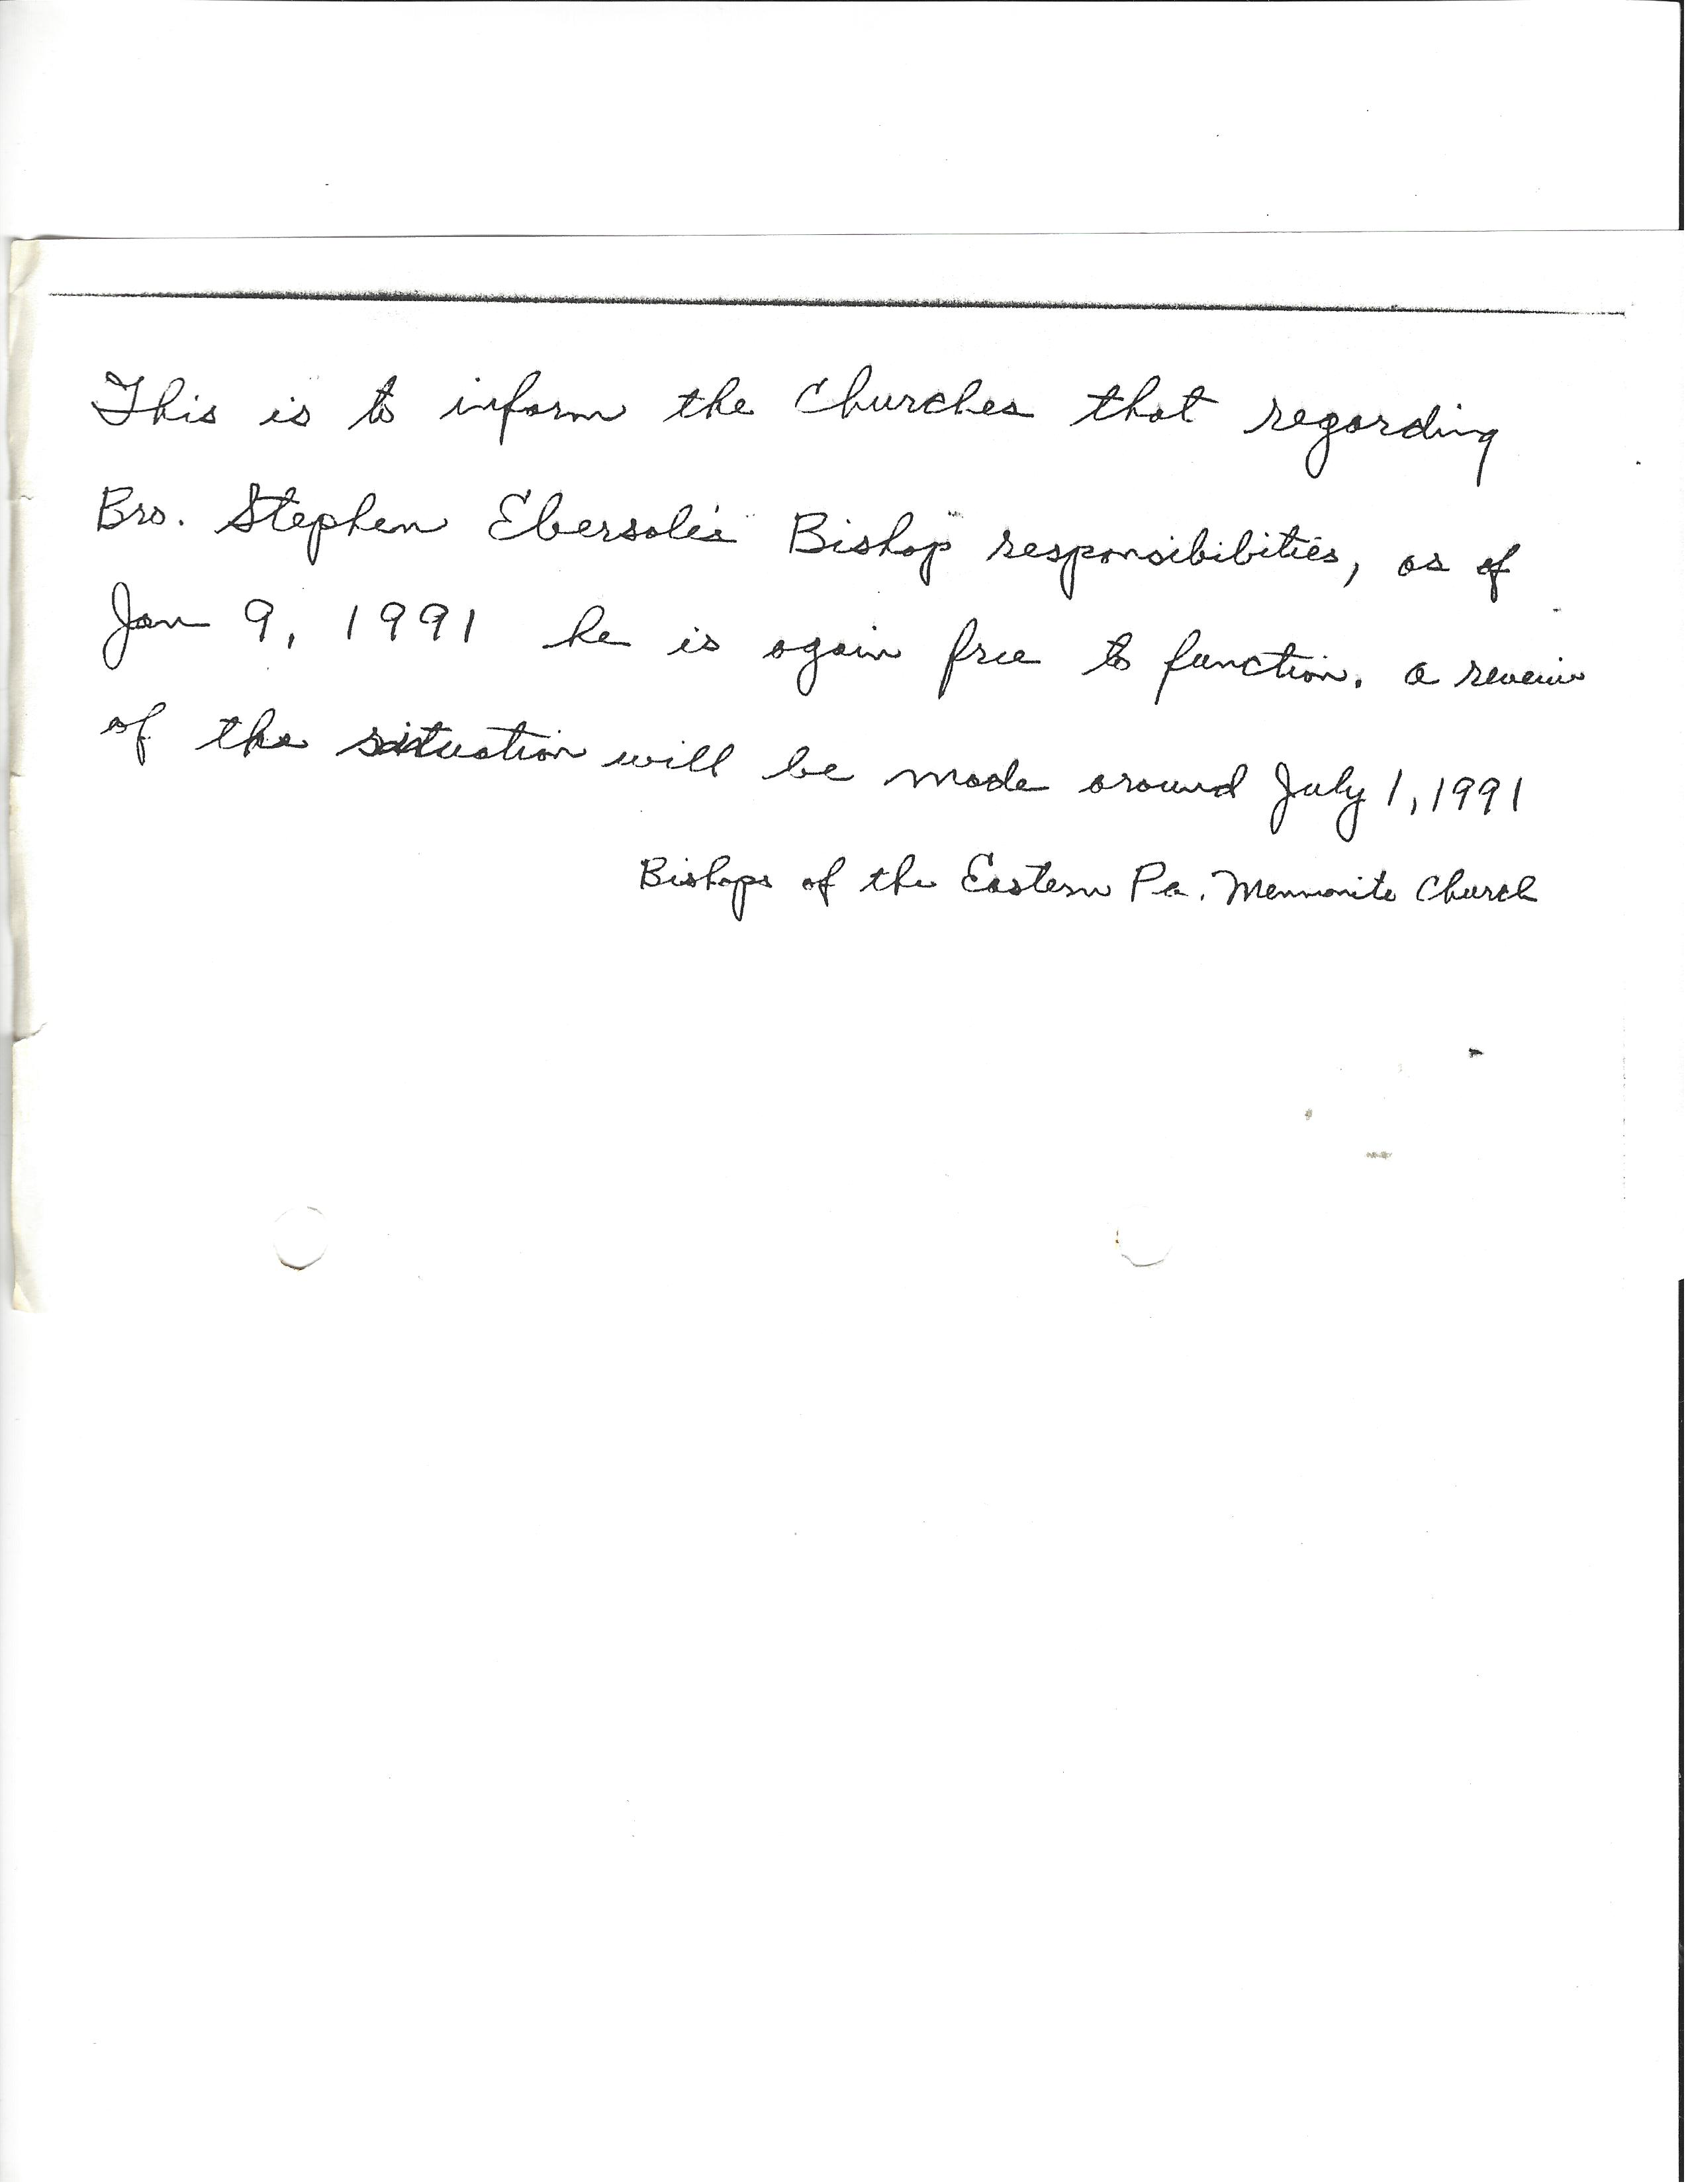 This is to inform the Churches that regarding
Bro. Stephen Ebersole's Bishop responsibibities, as of
Jan 9, 1991 he is again free to function. a reveiw
of the situation will be made around July 1, 1991
Bishops of the Eastern Pa. Mennonite Church